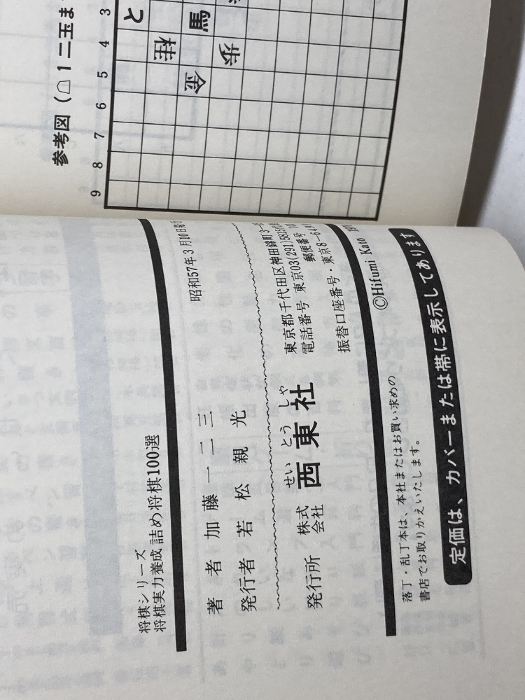 参考図（☖１二玉ま
3
4
5
6
7
8
9
と
馬
桂
歩
金
将棋シリーズ
将棋実力養成 詰め将棋100選
昭和57年3月10日
著者 加藤一二三
発行者 若松親光
せい とう しゃ
発行所 株式会社 西東社
東京都千代田区神田錦町3
電話番号 東京03(291)
郵便番号
振替口座番号・東京8-
©Hifumi Kato
落丁・乱丁本は、本社またはお買い求めの
書店でお取りかえいたします。
定価は、カバーまたは帯に表示してあります